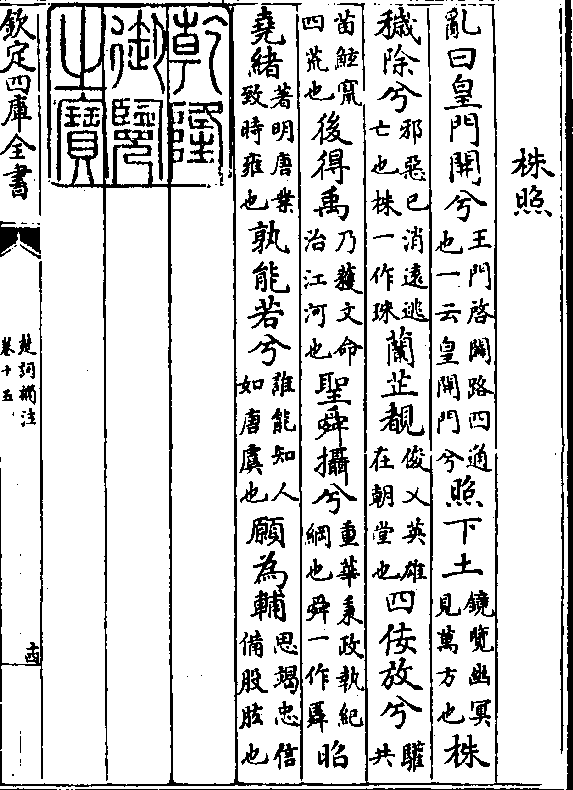 株照
亂曰皇門開兮王門啓闢路四通也一云皇開門兮照下土鏡覽幽冥見萬方也株
穢除兮邪惡已消遠逃亡也株一作珠蘭芷覩俊乂英雄在朝堂也四佞放兮驩共
苗鯀竄四荒也後得禹乃獲文命治江河也聖舜攝兮重華秉政執紀綱也舜一作昭
堯緒著明唐業致時雍也孰能若兮誰能知人如唐虞也願為輔思竭忠信備股肱也
乾隆
御覽
之寶
欽定四庫全書
楚詞補注
卷十五
十四